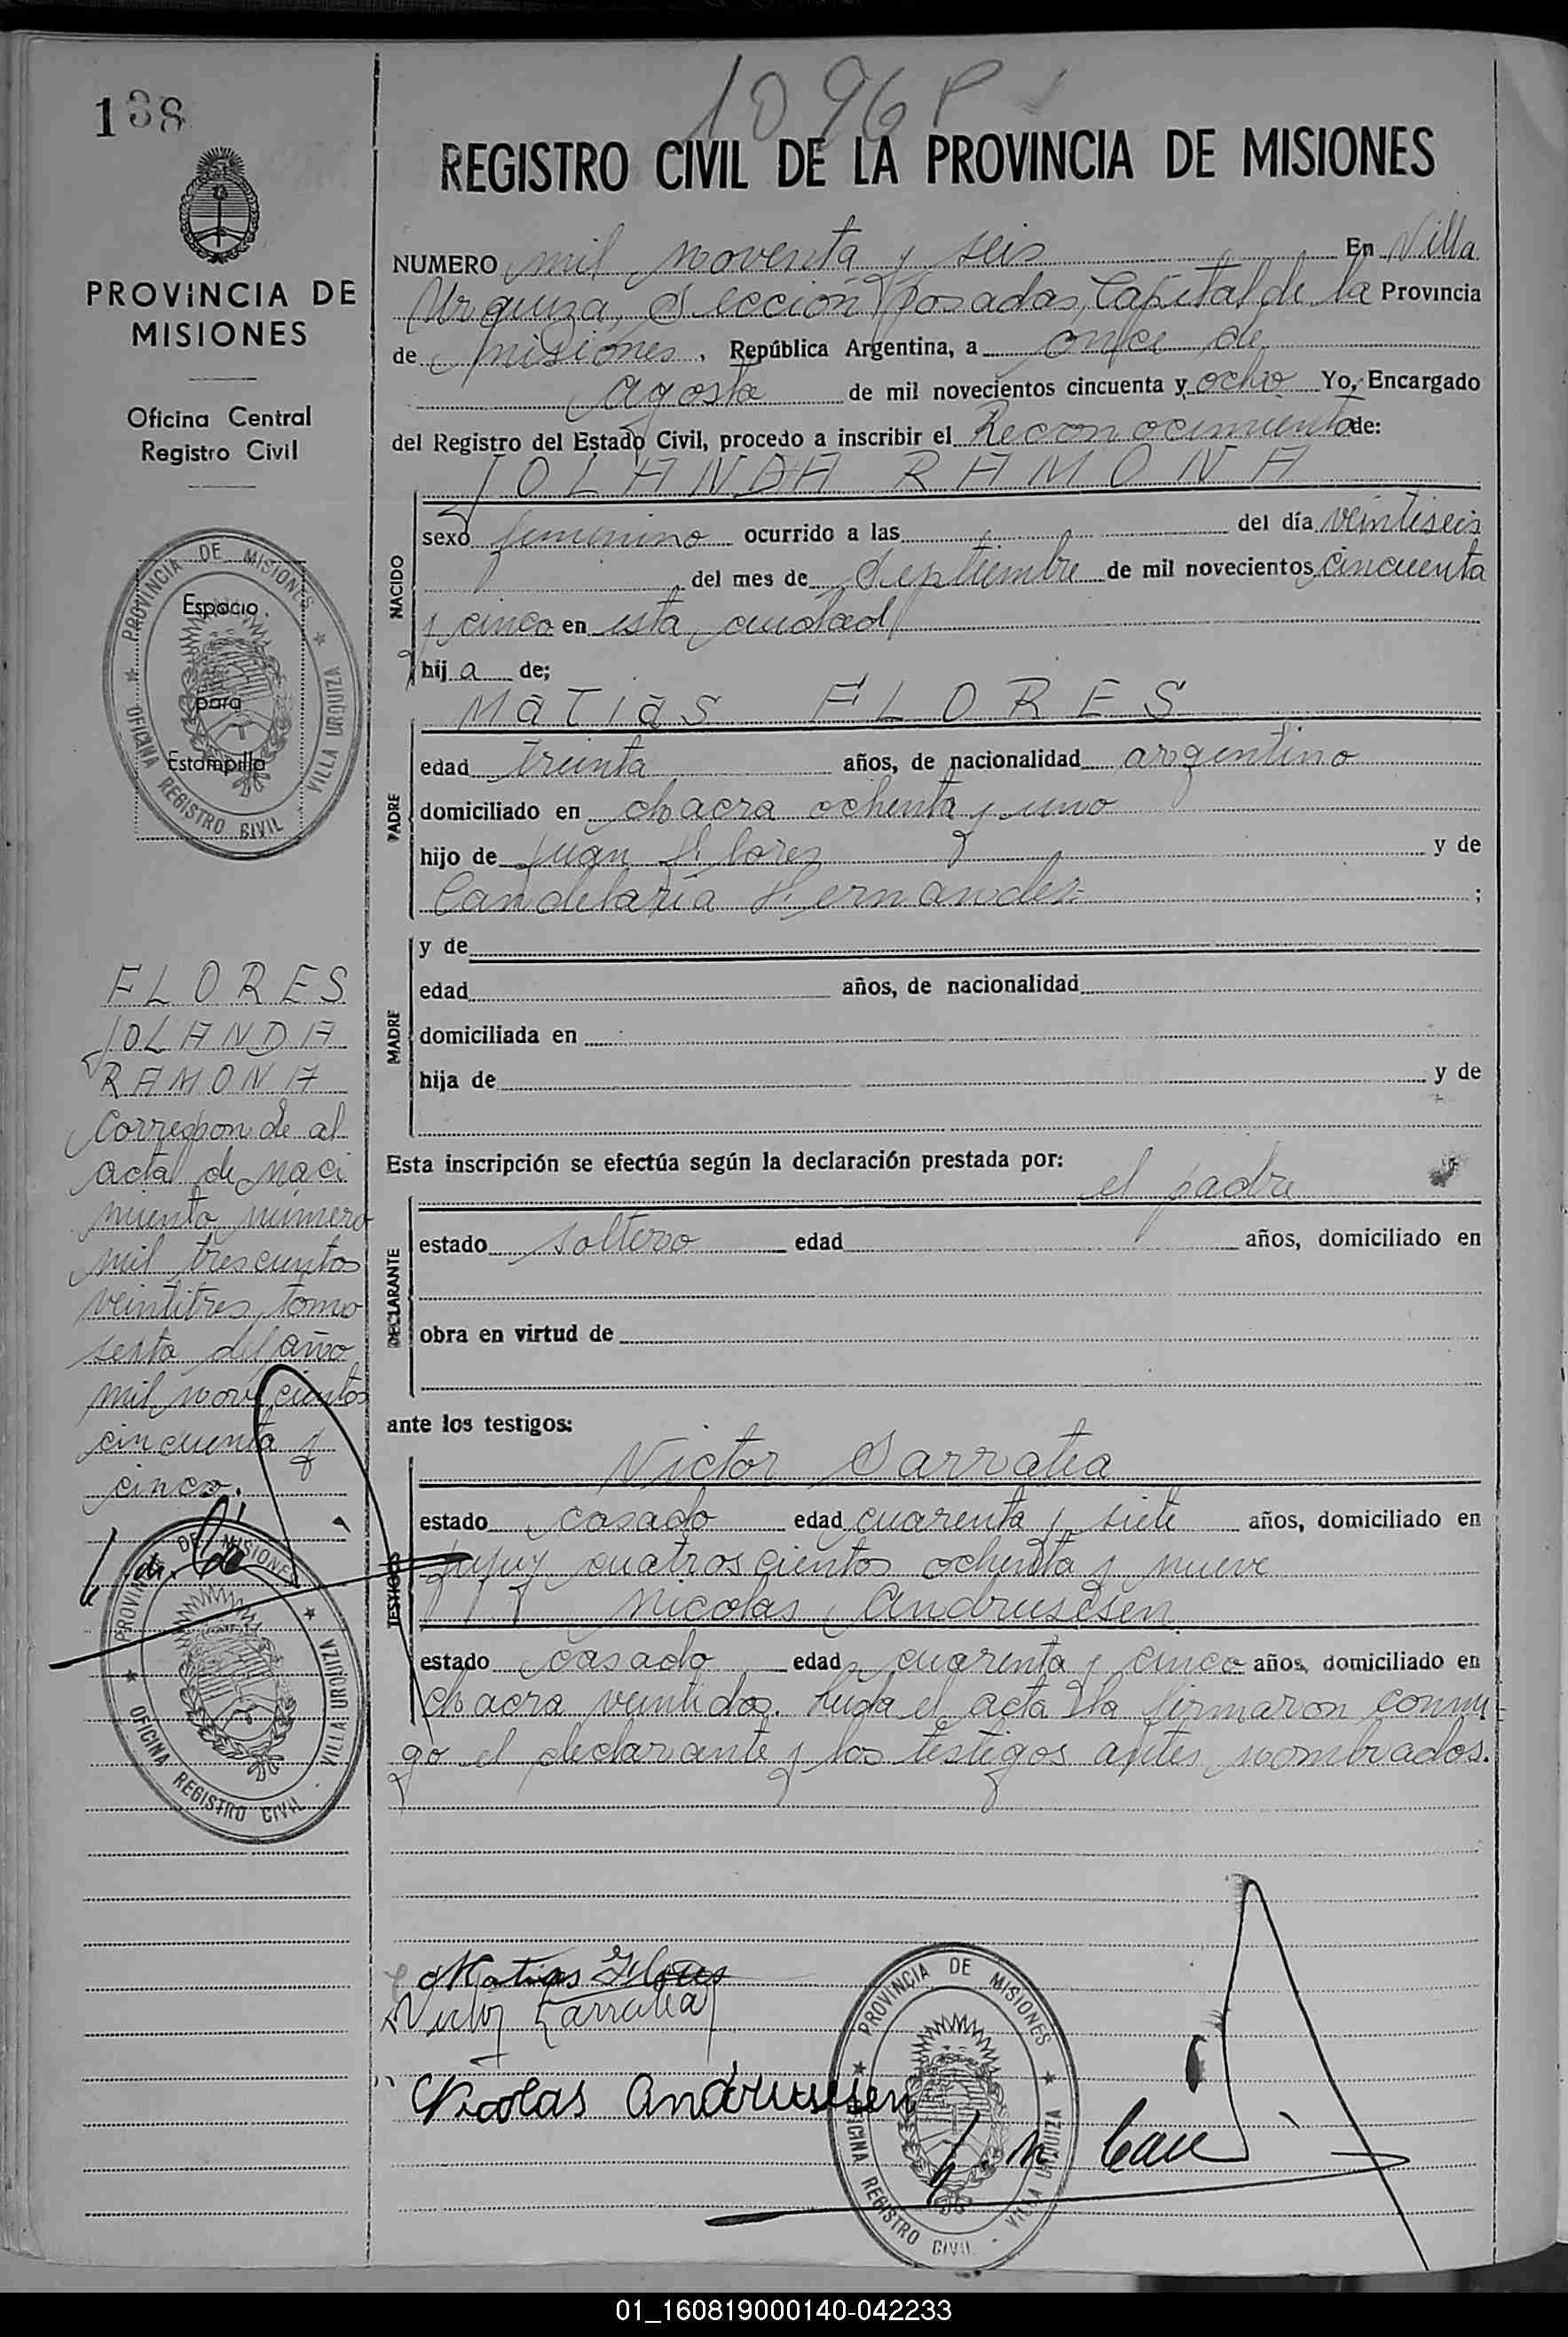 138
PROVINCIA DE
MISIONES
Oficina Central
Registro Civil
PROVINCIA DE MISIONES
OFICINA REGISTRO CIVIL
VILLA URQUIZA
Espacio
para
Estampilla
FLORES
IOLANDA
RAMONA
Corresponde al
acta de naci
miento número
mil trescientos
veintitres, tomo
sexto del año
mil novecientos
cincuenta y
cinco.
PROVINCIA DE MISIONES
OFICINA REGISTRO CIVIL
VILLA URQUIZA
1096 P
REGISTRO CIVIL DE LA PROVINCIA DE MISIONES
NUMERO mil noventa y seis En Villa
Urquiza, Sección Posadas, Capital de la Provincia
de Misiones. República Argentina, a once de
agosto de mil novecientos cincuenta y ocho Yo, Encargado
del Registro del Estado Civil, procedo a inscribir el Reconocimiento de:
IOLANDA RAMONA
NACIDO
sexo femenino ocurrido a las del día veintiseis
del mes de Septiembre de mil novecientos cincuenta
y cinco en esta ciudad
hij a de;
Matias FLORES
PADRE
edad treinta años, de nacionalidad argentino
domiciliado en chacra ochenta y uno
hijo de Juan Flores y de
Candelaria Hernandez ;
MADRE
y de
edad años, de nacionalidad
domiciliada en
hija de y de
Esta inscripción se efectúa según la declaración prestada por:
el padre
DECLARANTE
estado soltero edad años, domiciliado en
obra en virtud de
ante los testigos:
Victor Sarratea
TESTIGOS
estado casado edad cuarenta y siete años, domiciliado en
Jujuy cuatroscientos ochenta y nueve
Nicolas Andrusesen
estado casado edad cuarenta y cinco años, domiciliado en
chacra veintidos. Leida el acta la firmaron conmi=
go el declarante y los testigos antes nombrados.
Matias Flores
Victor Sarratea
Nicolas Andrusesen
PROVINCIA DE MISIONES
OFICINA REGISTRO CIVIL - VILLA URQUIZA
01_160819000140-042233